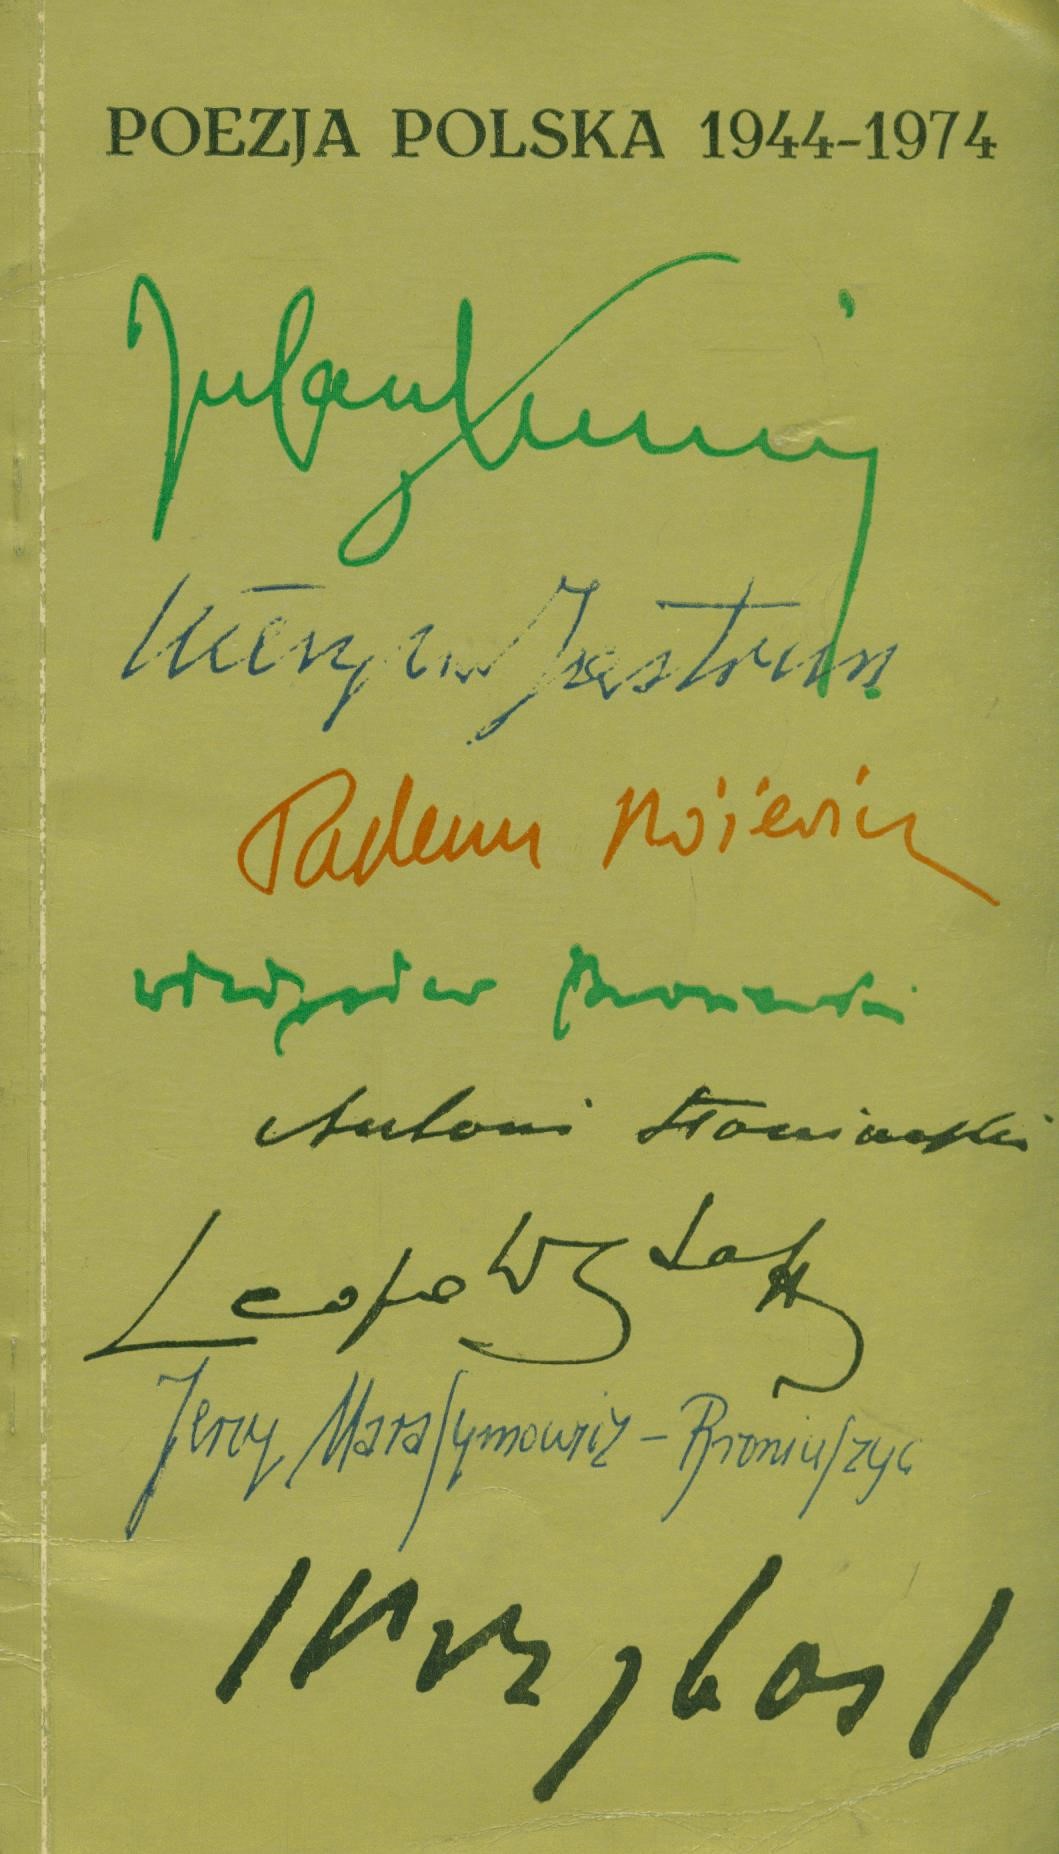 POEZJA POLSKA 1944-1974
Julian Tuwim
Mieczysław Jastrun
Tadeusz Różewicz
Władysław Broniewski
Antoni Słonimski
Leopold Staff
Jerzy Harasymowicz - Broniuszyc
Przyboś J